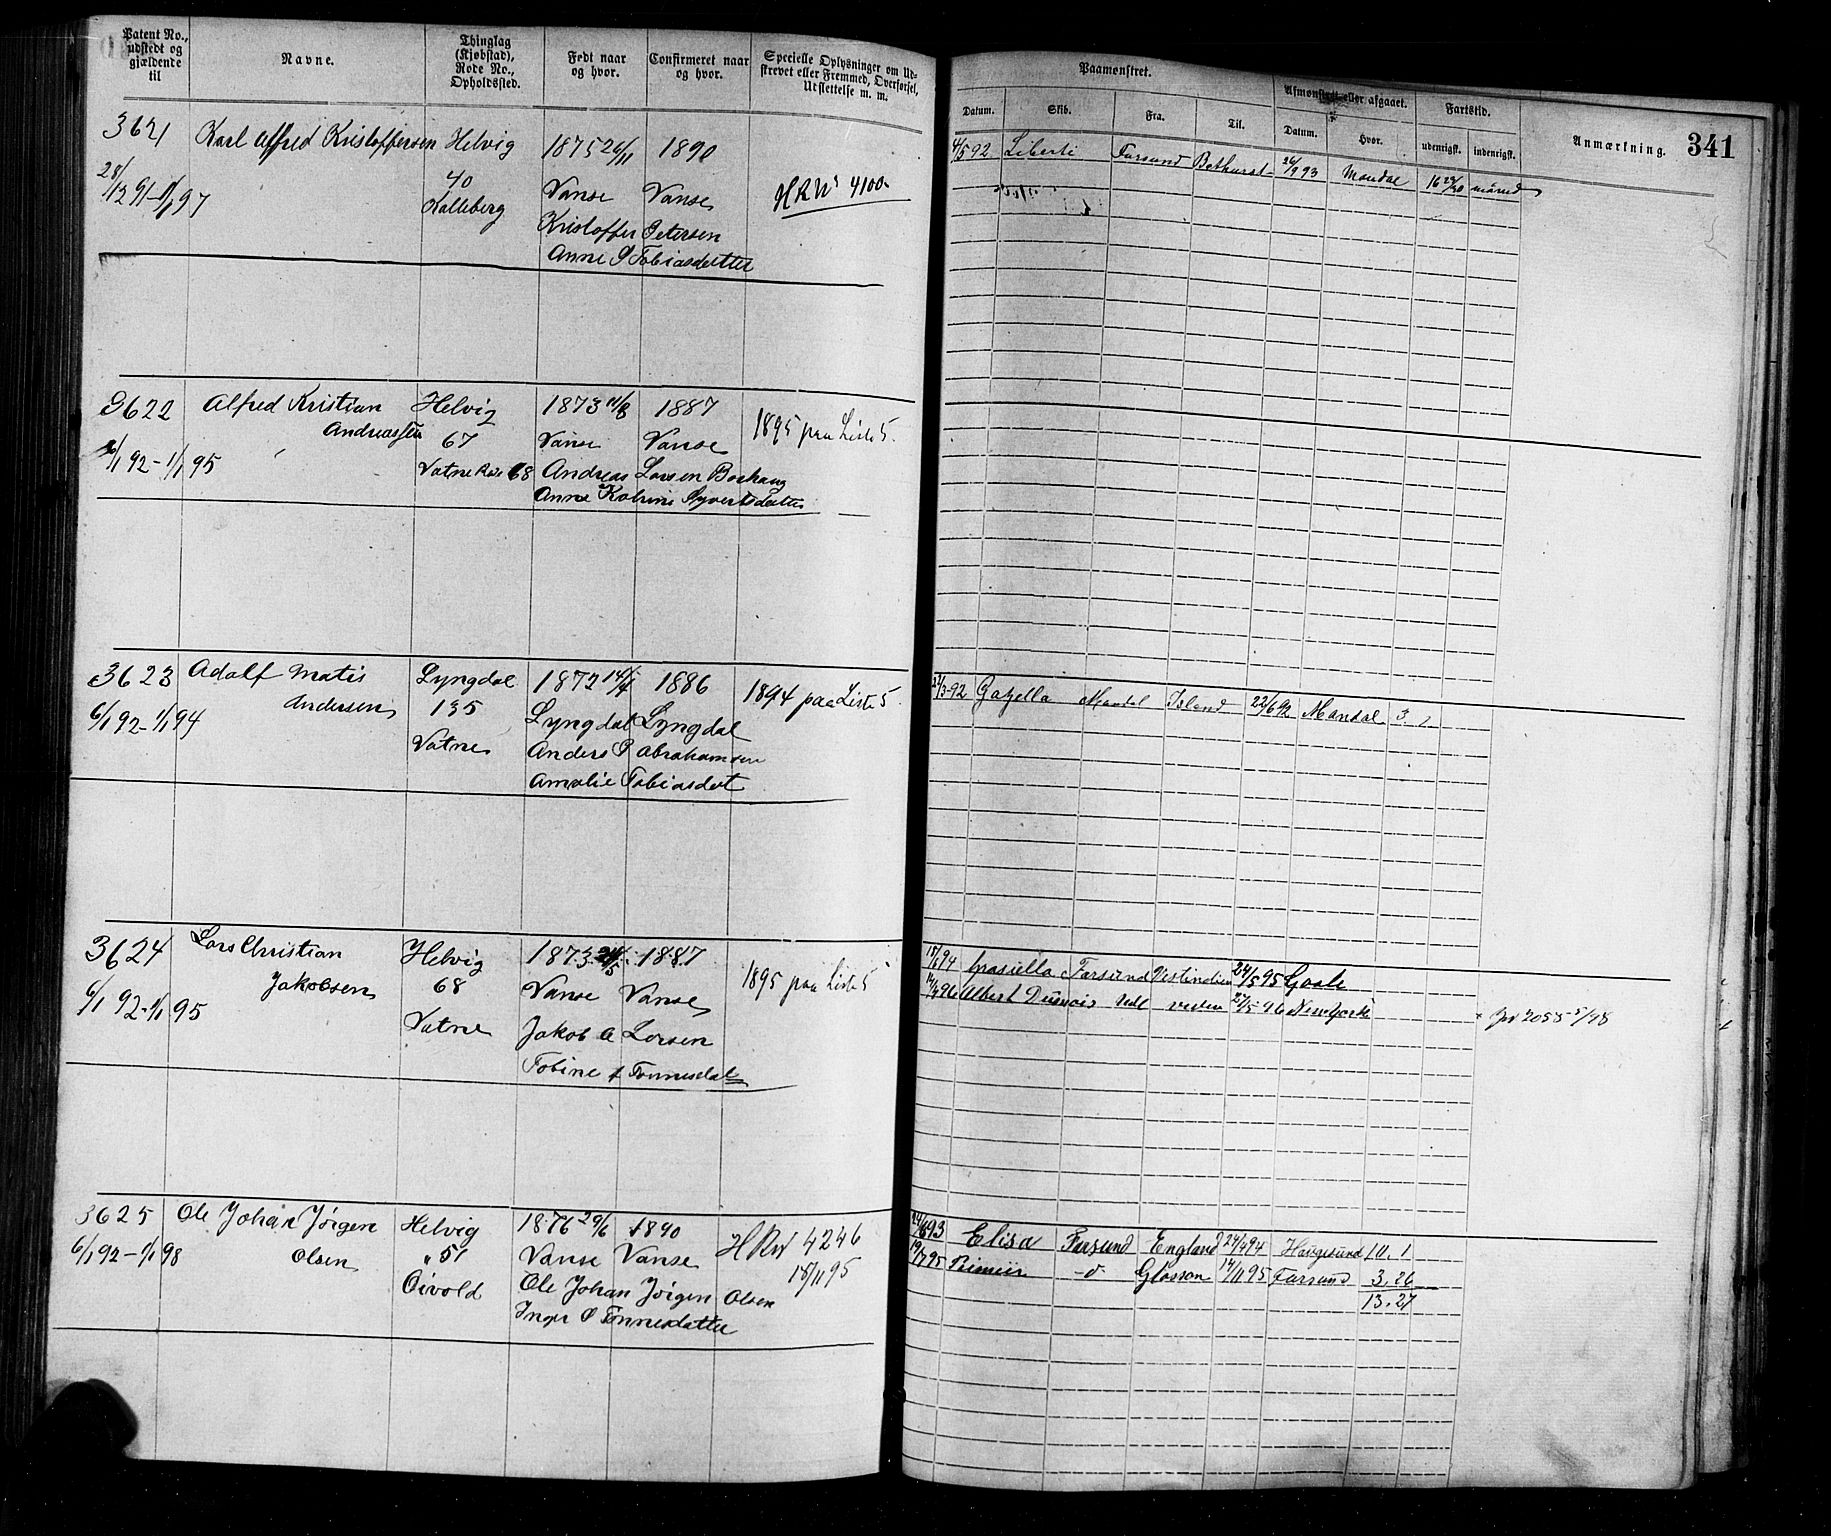 Patent No.,
udstedt og
gjældende
til
Navne.
Thinglag
(Kjøbstad),
Rode No.,
Opholdssted.
Født naar
og hvor.
Confirmeret naar
og hvor.
Specielle Oplysninger om Ud-
skrevet eller Fremmed, Overførsel,
Udslettelse m. m.
Paamønstret.
Datum.
Skib.
Fra.
Til.
Afmønstret eller afgaaet.
Datum.
Hvor.
Fartstid.
udenrigsk.
indenrigsk.
Anmærkning.
341
3621 Karl Alfred Kristoffersen Helvig 1875 26/11 1890
28/12 91-1/1 97 40 Vanse Vanse HRN 4100
Kalleberg Kristoffer Petersen
Anne P Tobiasdatter
4/5 92 Liberti Farsund Bathurst 24/9 93 Mandal 16 maaned
3622 Alfred Kristian Helvig 1873 11/8 1887
Andreassen 67 Vanse Vanse 1895 paa Liste 5.
6/1 92-1/1 95 Vatne Rode 68 Andreas Larsen Boshaug
Anne Katrine Syvertsdatter
3623 Adolf Matis Lyngdal 1872 1886
Andersen 135 Lyngdal Lyngdal 1894 paa Liste 5.
6/1 92-1/1 94 Vatne Anders P Abrahamsen
Amalie Tobiasdat
/3-92 Gazella Mandal Island 22/6 92 Mandal 3.
3624 Lars Christian Helvig 1873 1887
Jakobsen 68 Vanse Vanse 1895 paa Liste 5
6/1 92-1/1 95 Vatne Jakob A Larsen
Tobine Tønnesdat
94 Grasiella Farsund Vestindien 95 Goole
96 Albert ud vesten 96 New York 2058
3625 Ole Johan Jørgen Helvig 1876 29/6 1890 HRN 4246
6/1 92-1/1 98 Olsen "51 Vanse Vanse 15/11 95
Øivold Ole Johan Jørgen Olsen
Inger Tønnesdatter
93 Elisa Farsund England 94 Haugesund 10. 1
19/7 95 -"- Glasson 14/11 95 Farsund 3. 26
13. 27